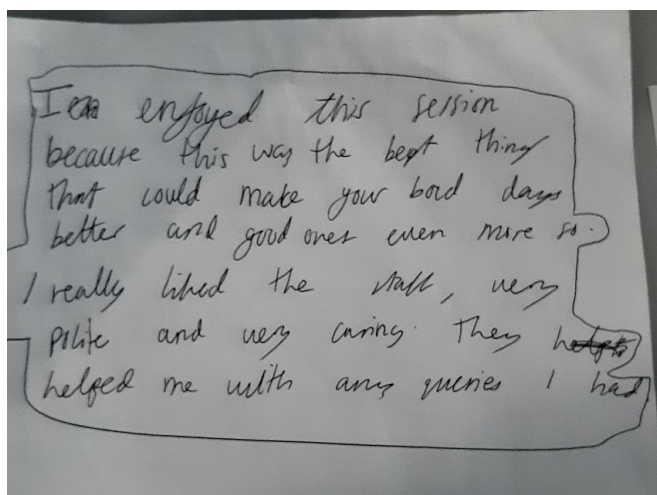 I enjoyed this session
because this was the best thing
that could make your bad days
better and good ones even more so.
I really liked the staff, very
polite and very caring. They
helped me with any queries I had